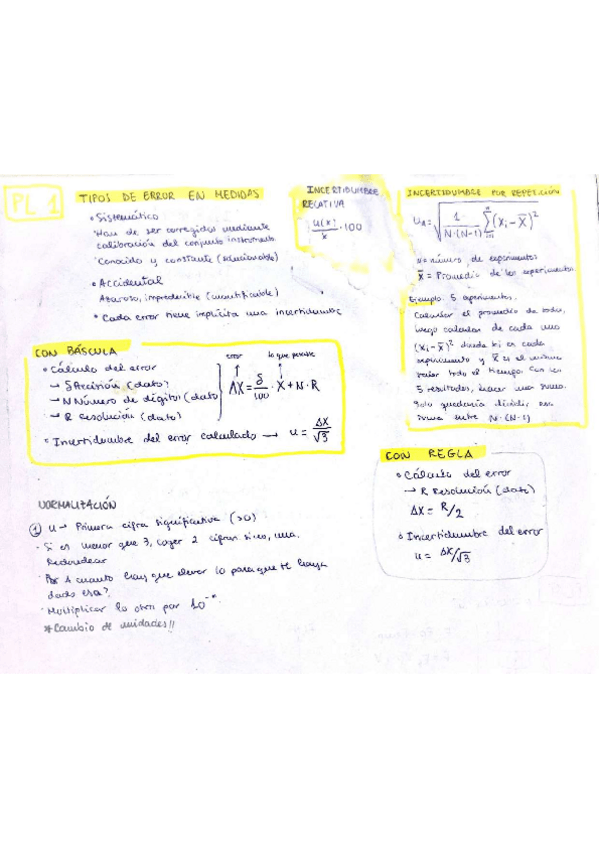 PL 1
TIPOS DE ERROR EN MEDIDAS
• Sistemático
Han de ser corregidos mediante
calibración del conjunto instrumento.
Conocido y constante (solucionable)
• Accidental
Azaroso, impredecible (cuantificable)
• Cada error tiene implícita una incertidumbre
INCERTIDUMBRE
RELATIVA
u(x)/x · 100
INCERTIDUMBRE POR REPETICIÓN
u_A = √(1/(N·(N-1)) Σ(xᵢ - x̄)²)
N = número de experimentos
x̄ = Promedio de los experimentos
Ejemplo: 5 experimentos.
Calcular el promedio de todos,
luego calcular de cada uno
(xᵢ - x̄)² donde xi es cada
experimento y x̄ es el mismo
todo el tiempo. Con los
5 resultados, hacer una suma.
Solo quedaría dividir esa
suma entre N·(N-1)
CON BÁSCULA
• Cálculo del error
→ δ (dato)
→ N Número de dígitos (dato)
→ R resolución (dato)
error
lo que
ΔX = δ/100 · X + N · R
• Incertidumbre del error calculado → u = ΔX/√3
CON REGLA
• Cálculo del error
→ R Resolución (dato)
ΔX = R/2
• Incertidumbre del error
u = ΔX/√3
NORMALIZACIÓN
① u → Primera cifra significativa (>0)
· Si es menor que 3, coger 2 cifras sino, una.
Redondear
· A cuanto hay que elevar 10 para que te haya
dado esa?
· Multiplicar lo otro por 10⁻ⁿ
* Cambio de unidades!!